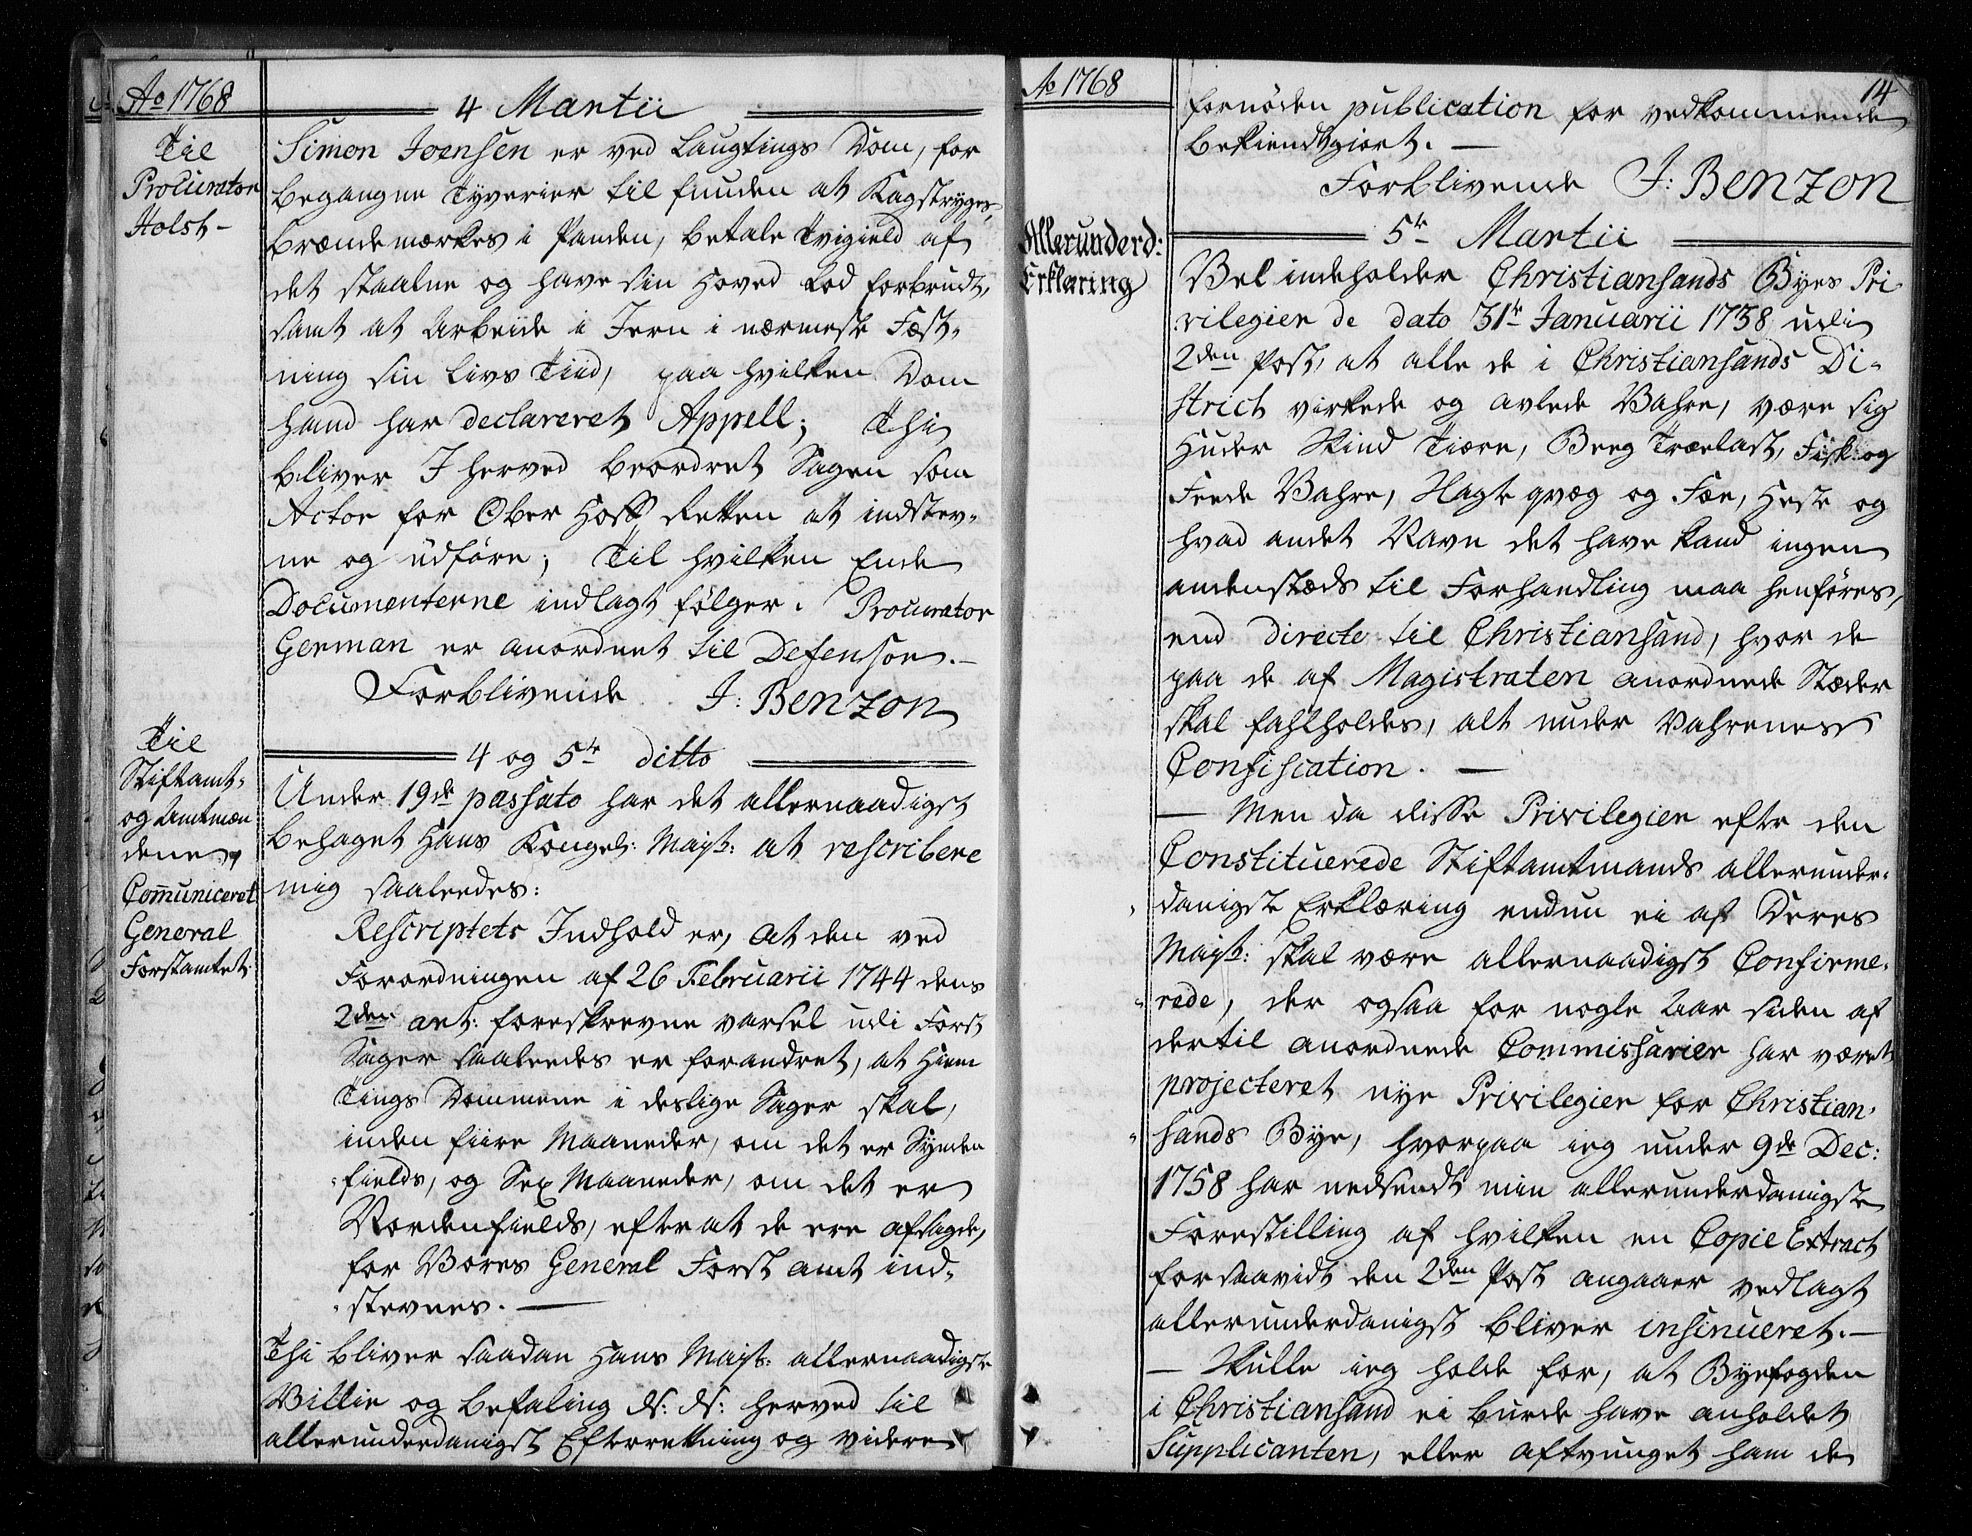 Ao 1768
4 Martii
Til
Procurator
Holst -
Simon Joensen er ved Laugtings Dom, for
begangne Tyverier til funden at Kagstryges,
brændemærkes i Panden, betale Tvigield af
det staalne og have sin Hoved Lod forbrudt,
samt at Arbeide i Jern i nærmeste Fæst-
ning sin Livs Tiid, paa hvilken Dom
hand har declareret Appell; Thi
bliver I herved beordret Sagen som
Actor for Ober Hoff Retten at indstev-
ne og udføre; Til hvilken Ende
Documenterne indlagt følger. Procurator
German er anordnet til Defensor. -
Forblivende J: Benzon
4 og 5te ditto
Til
Stiftamt-
og Amtmæn
dene,
Com̄uniceret
General
Forstamtet
Under 19de passato har det allernaadigst
behaget Hans Kongel: Mayst: at rescribere
mig saaledes:
Rescriptets Indhold er, at den ved
Forordningen af 26 Februarii 1744 dens
2den art: foreskrevne varsel udi Forst
Sager saaledes er forandret, at Hiem
Tings Dommene i deslige Sager skal,
inden fiire Maaneder, om det er Synden
fields, og Sex Maaneder, om det er
Nordenfields, efter at de ere afsagde,
for Vores General Forst amt ind-
stevnes. —
Thi bliver saadan Hans Mayst: allernaadigste
Villie og befaling ds: ds: herved til
allerunderdanigst Efterretning og videre
Ao 1768
14
fornøden publication for vedkommende
bekiendtgiort. —
Forblivende J: Benzon
5te Martii
Allerunderd:
Erklæring
Vel indeholder Christiansands Byes Pri
vilegier de dato 31te Januarii 1738 udi
2den Post, at alle de i Christiansands Di-
strict virkede og avlede Vahre, være sig
Huder Skind Tiære, Berg Trælast, Fisk og
Feede Vahre, Slagte qvæg og Fæe, Heste og
hvad andet Navn det have kand ingen
andenstæds til Forhandling maa henføres,
end directe til Christiansand, hvor de
paa de af Magistraten anordnede Stæder
skal fahlholdes, alt under Vahrenes
Confiscation. —
— Men da disse Privilegier efter den
Constituerede Stiftamtmands allerunder-
danigste Erklæring endnu ei af Deres
Mayst: skal være allernaadigst Confirme-
rede, der ogsaa for nogle Aar siden af
dertil anordnede Commissarier har været
projecteret nye Privilegier for Christian-
sands Bye, hvorpaa ieg under 9de Dec:
1758 har nedsendt min allerunderdanigste
Forestilling af hvilken en Copie Extract
forsaavidt den 2den Post angaaer vedlagt
allerunderdanigst bliver insinueret. —
— Skulle ieg holde for, at Byefogden
i Christiansand ei burde have anholdet
Supplicanten, eller aftvunget ham de